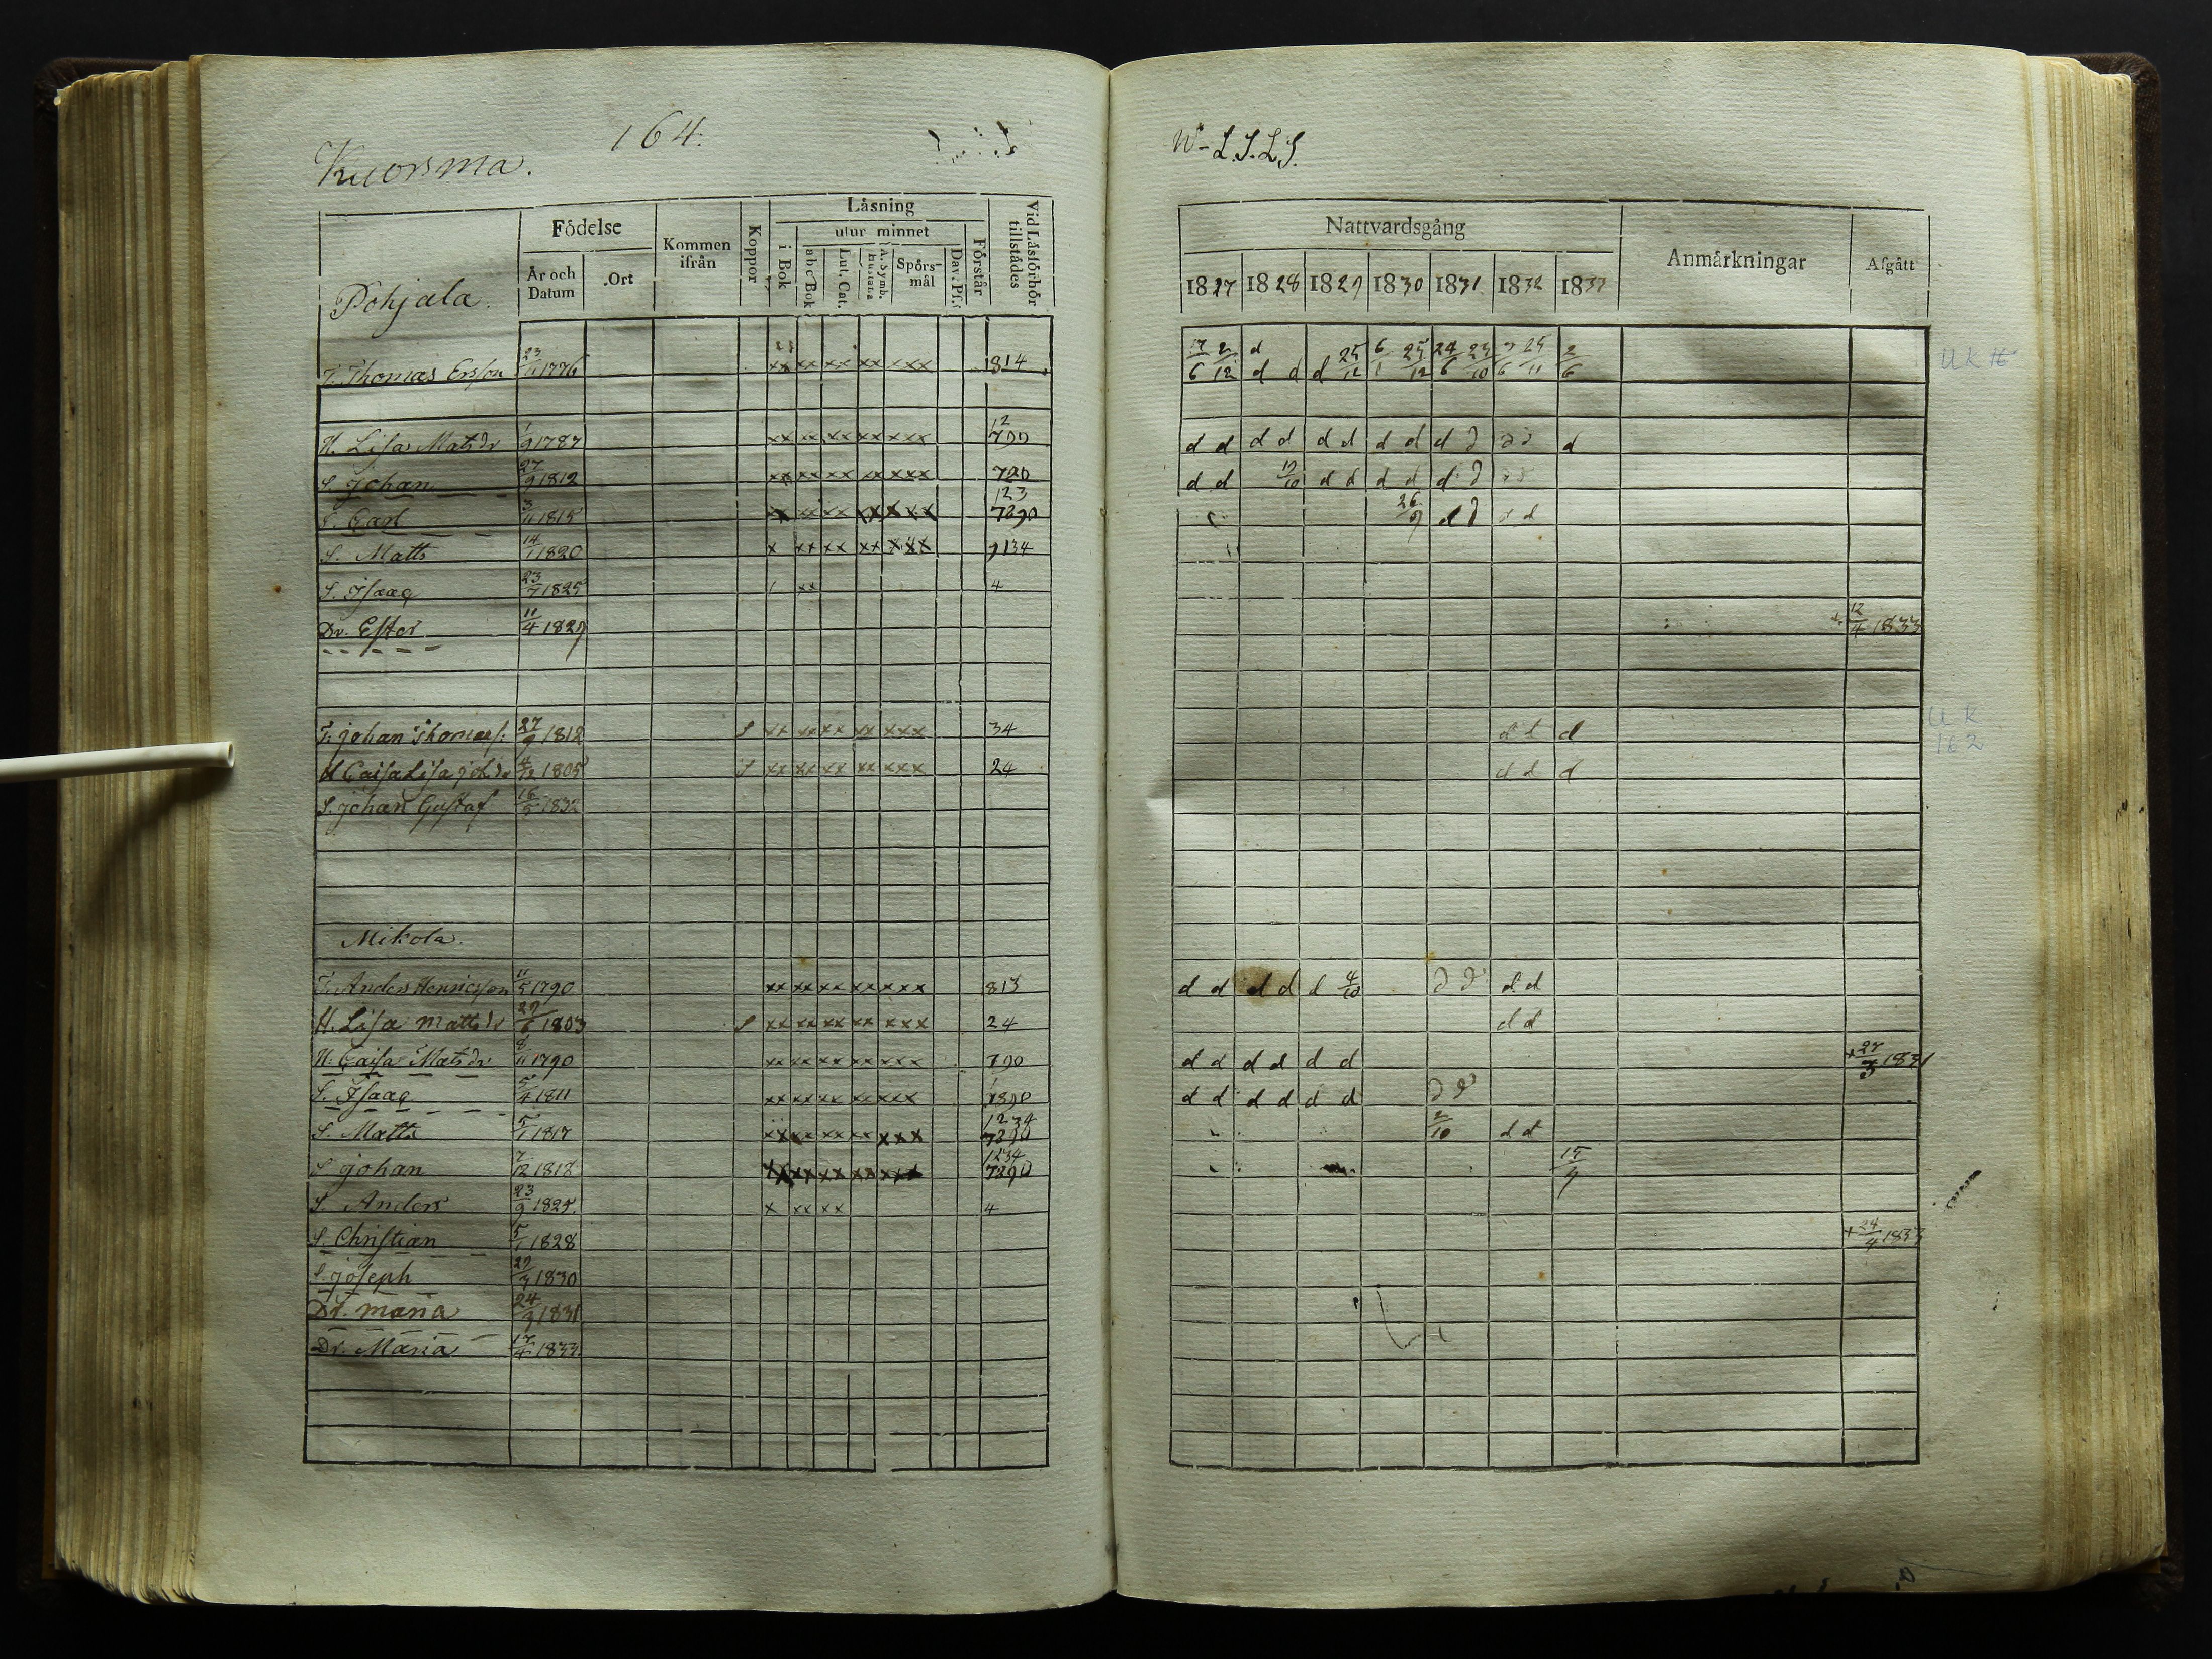 164.
Kuorsma.
Pohjala.
Födelse
År och Datum
Ort
Kommen ifrån
Koppor
Läsning
i Bok
utur minnet
abc Bok
Lut. Cat.
A. Symb.
Hustafla
Spörs-mål
Dav. Ps.
Förstår
Vid Läsförhör tillstädes
T. Thomas Ersson 23/11 1776 xx xx xx xx xxx 814
H. Lisa Matsdr 1/9 1787 xx xx xx xx xxx 12 790
S. Johan 27/9 1812 xx xx xx xx xxx 720
S. Carl 3/11 1815 xx xx xx xx xxx 123 7890
S. Matts 14/1 1820 x xx xx xx xxx 9134
S. Isaac 23/7 1825 / xx 4
Dr. Ester 11/4 1829
T. johan Thomas: 27/9 1812 S xx xx xx xx xxx 34
H Caisa Lisa joh.dr 4/12 1805 S xx xx xx xx xxx 24
S. johan Gustaf 16/5 1832
Mikola.
T. Anders Henricsson 11/5 1790 xx xx xx xx xxx 813
H. Lisa mattsdr 29/6 1803 S xx xx xx xx xxx 24
H. Caisa Matsdr 8/11 1790 xx xx xx xx xxx 790
S. Isaac 5/4 1811 xx xx xx xx xxx 1 7890
S. Matts 5/1 1817 xx xx xx xx xxx 1234 7890
S johan 7/12 1818 xx xx xx xx xxx 1234 7890
S. Anders 23/9 1825 x xx xx 4
S. Christian 5/1 1828
S. joseph 29/3 1830
Dr. maria 24/9 1831
Dr. Maria 17/4 1833
W-L.S.L.S.
Nattvardsgång
Anmärkningar
Afgått
1827 1828 1829 1830 1831 1832 1833
17/6 2/12 d d d d 25/12 6/1 25/12 24/6 23/10 25/11 2/6
UK
d d d d d d d d d d d d d
d d 19/10 d d d d d d
26/9 d d d d
+ 12/4 1833
d d d
UK
162
d d d
d d d d d 4/10 d d d d
d d
d d d d d d + 27/3 1831
d d d d d d d d
2/10 d d
15/9
+ 24/4 1833